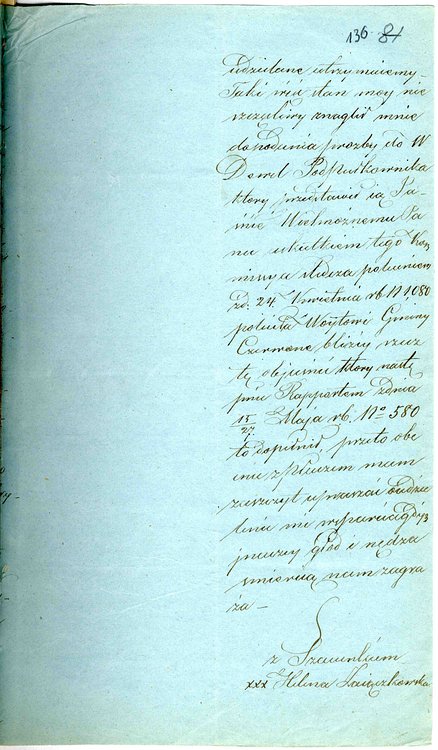 136 81
udzielane utrzymuiemy –
Taki więc stan moy nie
szczęśliwy znaglił mnie
do podania prozby do W
Dowod Podpułkownika
który przedstawił ią Ja
śnie Wielmożnemu Pa
nu skutkiem tego Kom
missya śledcza poleceniem
zd. 24 Kwietnia rb N 1080
poleciła Woytowi Gminy
Czerwone bliższy rzecz
tę objasnić który nastę
pnie Rapportem zdnia
15/27 Maja rb. No 580
to dopełnił, przeto obe
cnie z płaczem mam
zaszczyt upraszać o udzie
lenie mi wsparcia gdyż
inaczey głod i nędza
smiercią nam zagra
ża –
z Szacunkiem
xxx Helena Zaiączkowska